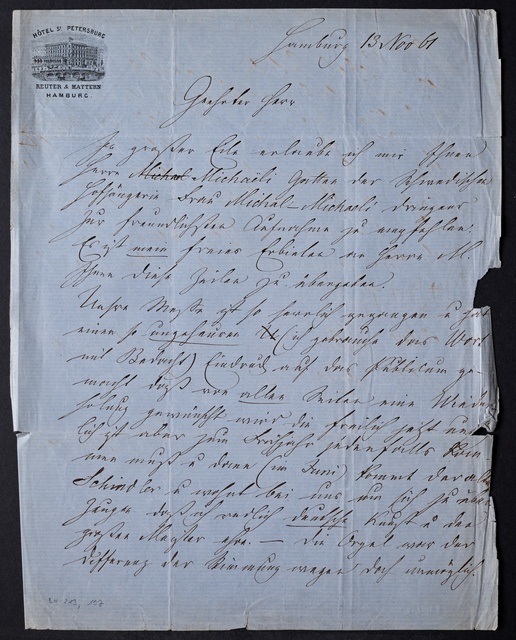 HÔTEL ST PETERSBURG
REUTER & HATTERN
HAMBURG.
Hamburg 13 Nov 61
Geehrter Herr
In großer Eile erlaube ich mir Ihnen
Herrn Michael Michaeli Gatten der Schwedischen
Hofsängerin Frau Michal-Michaeli dringend
zur freundlichsten Aufnahme zu empfehlen.
Es ist mein freies Erbieten an Herrn M.
Ihnen diese Zeilen zu übergeben.
Unsre Messe ist so herrlich gegangen u hat
einen so ungeheuren (ich gebrauche das Wort
mit Bedacht) Eindruck auf das Publikum ge-
macht daß von allen Seiten eine Wieder-
holung gewünscht wird die freilich jetzt un
lich ist aber zum Frühjahr jedenfalls
men muß u dann (im Juni) kommt der alte
Schindler u wohnt bei uns um sich zu über-
zeugen daß ich redlich deutsche Kunst u den
großen Meister ehre. — Die Orgel war der
Differenz der Stimmung wegen doch unmöglich.